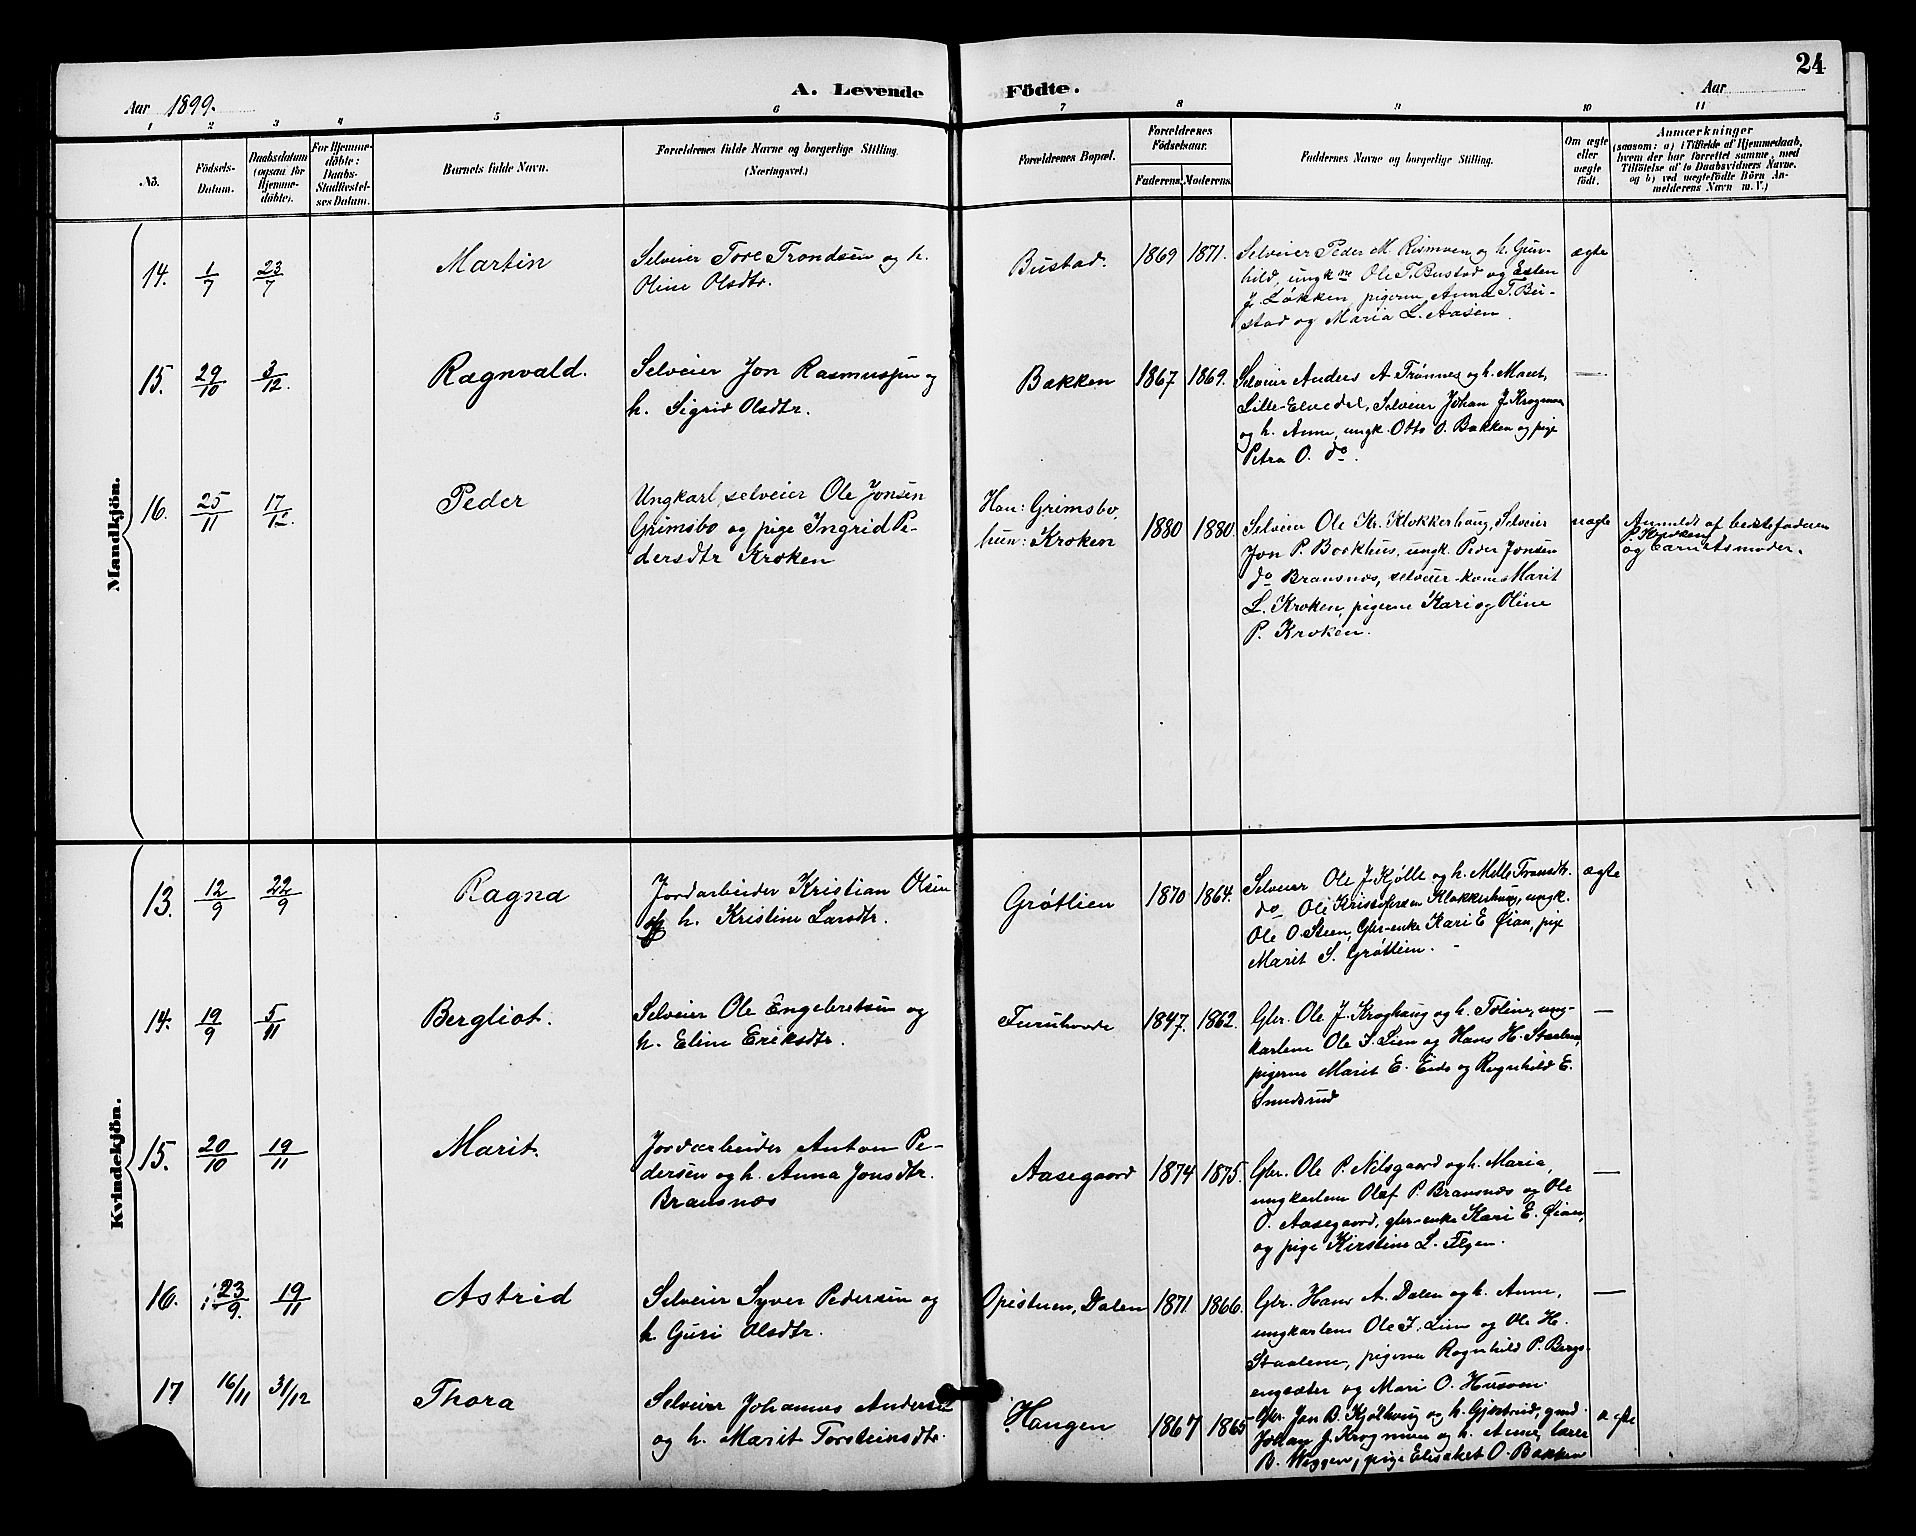 24
Aar 1899.
A. Levende Födte.
Aar
1 2 3 4 5 6 7 8 9 10 11
No.
Födsels-Datum.
Daabsdatum (ogsaa for Hjemme-döbte).
For Hjemme-döbte: Daabs-Stadfæstel-ses Datum.
Barnets fulde Navn.
Forældrenes fulde Navne og borgerlige Stilling. (Næringsvei.)
Forældrenes Bopæl.
Forældrenes Födselsaar.
Faderens. Moderens.
Faddernes Navne og borgerlige Stilling.
Om ægte eller uægte födt.
Anmærkninger
(saasom: a) i Tilfælde af Hjemmedaab, hvem der har forrettet samme, med Tilföielse af to Daabsvidners Navne. og b) ved uægtefödte Börn An-melderens Navn m. V.)
Mandkjön.
14. 1/7 23/7 Martin
Selveier Tore Trondsen og h.
Oline Olsdtr.
Bustad. 1869 1871.
Selveier Peder M. Rismoen og h. Gun-
hild, ungkne Ole T. Bustad og Esten
J. Løkken, pigerne Anna T. Bu-
stad og Maria L. Aasen.
ægte
15. 29/10 3/12. Ragnvald.
Selveier Jon Rasmussen og
h. Sigrid Olsdtr.
Bakken 1867 1869.
Selveier Anders A. Trønnes og h. Marit,
Lille-Elvedal, Selveier Johan J. Krogmoen
og h. Anne, ungk. Otto O. Bakken og pige
Petra O. do.
—
16. 25/11 17/12. Peder
Ungkarl, selveier Ole Jonsen
Grimsbo og pige Ingrid Pe-
dersdtr Kroken
Han: Grimsbo,
hun: Kroken
1880 1880.
Selveier Ole Kr. Klokkerhaug, Selveier
Jon P. Borkhus, ungk. Peder Jonsen
do Bransnæs, selveier-kone Marit
L. Kroken, pigerne Kari og Oline
P. Kroken.
uægte
Anmeldt af bedstefaderen
P. Kroken
og barnets moder.
Kvindekjön.
13. 12/9 22/9 Ragna
Jordarbeider Kristian Olsen
og h. Kristine Larsdtr.
Grøtlien 1870 1864.
Selveier Ole J. Kjølle og h. Mille Transdtr.
do Ole Kristofersen Klokkerhaug, ungk.
Ole O. Steen, Gbr-enke Kari E. Øian, pige
Marit S. Grøtlien.
ægte
14. 19/9 5/11 Bergliot.
Selveier Ole Engebretsen og
h. Eline Eriksdtr.
Furuhovde 1847. 1862.
Gbr. Ole J. Kroghaug og h. Toline, ung-
karlene Ole S. Lien og Hans H. Staalene,
pigerne Marit E. Eide og Ragnhild E.
Smedsrud
—
15. 20/10 19/11 Marit.
Jordarbeider Anton Pe-
dersen og h. Anna Jonsdtr.
Bransnæs
Aasegaard 1874 1875.
Gbr. Ole P. Nilsgaard og h. Maria,
ungkarlene Olaf P. Bransnæs og Ole
O. Aasegaard, gbr-enke Kari E. Øian,
og pige Kirstine L. Elgen.
—
16. 23/9. 19/11 Astrid
Selveier Syver Pedersen og
h. Guri Olsdtr.
Opistuen, Dalen 1871 1866.
Gbr. Hans A. Dalen og h. Anne,
ungkarlene Ole I. Lien og Ole H.
Staalene, pigerne Ragnhild P. Bergs-
engsæter og Mari O. Husom.
—
17 16/11 31/12 Thora
Selveier Johannes Andersen
og h. Marit Torsteinsdtr.
Haugen 1867 1865
Gbr. Jon B. Kjølhaug og h. Gjertrud, gmd
Johan J. Krogmoen og h. Anne, lærer
B. Wiggen, pige Elisabet O. Bakken
ægte